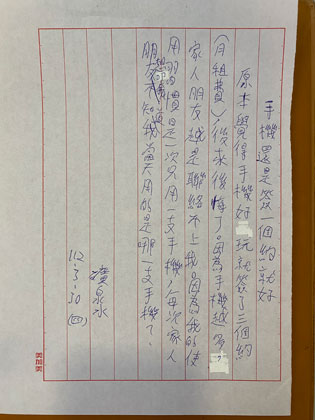 手機還是簽一個約就好
原本覺得手機好玩就簽了三個約
(月租費),後來後悔了。因為手機越多,
家人朋友越是聯絡不上我。因為我的使
用習慣是一次只用一支手機,每次家人
朋友都不知道我當天用的是哪一支手機了。
濱泉水
112.3.30(四)